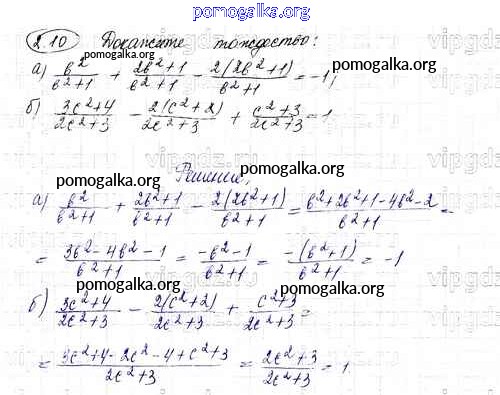 pomogalka.org
2.10 Докажите тождество:
pomogalka.org
а) b²/(b²+1) + (2b²+1)/(b²+1) - 2(2b²+1)/(b²+1) = -1;
pomogalka.org
б) (3c²+4)/(2c²+3) - 2(c²+2)/(2c²+3) + (c²+3)/(2c²+3) = 1
pomogalka.org
Решение,
pomogalka.org pomogalka.org
а) b²/(b²+1) + (2b²+1)/(b²+1) - 2(2b²+1)/(b²+1) = (b²+2b²+1-4b²-2)/(b²+1) =
pomogalka.org
= (3b²-4b²-1)/(b²+1) = (-b²-1)/(b²+1) = -(b²+1)/(b²+1) = -1
pomogalka.org pomogalka.org
б) (3c²+4)/(2c²+3) - 2(c²+2)/(2c²+3) + (c²+3)/(2c²+3) =
pomogalka.org
= (3c²+4-2c²-4+c²+3)/(2c²+3) = (2c²+3)/(2c²+3) = 1
pomogalka.org